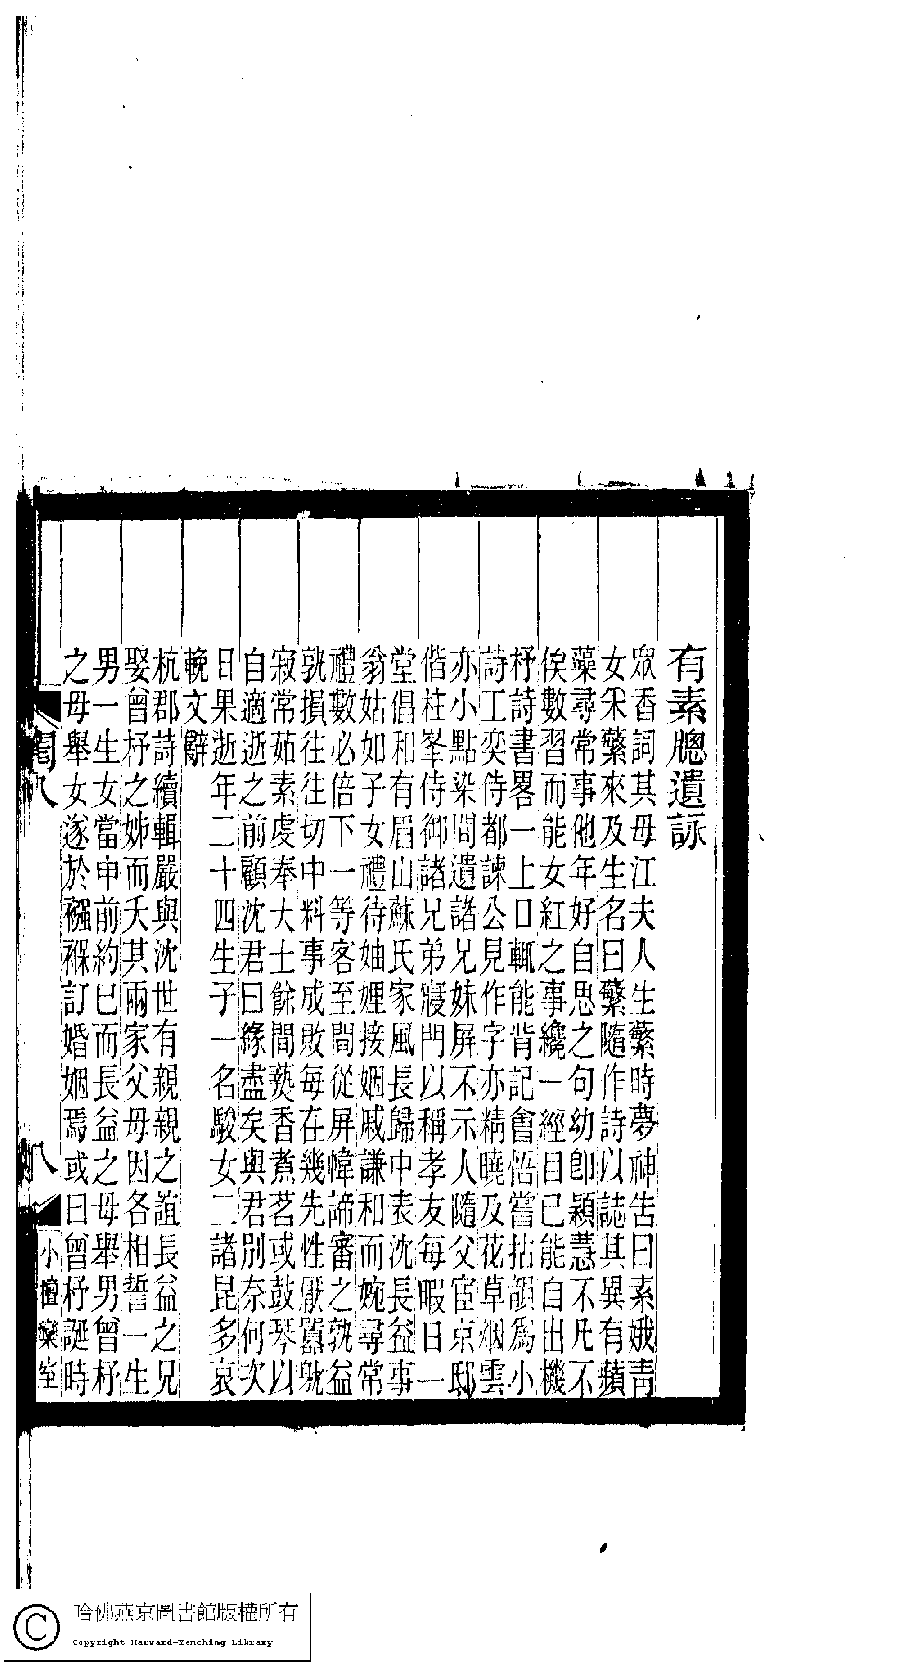 有素牕遺詠
眾香詞其母江夫人生蘩時夢神告曰素娥青
女采蘩來及生名曰蘩隨作詩以誌其異有蘋
藻尋常事他年好自思之句幼即穎慧不凡不
俟數習而能女紅之事纔一經目已能自出機
杼詩書畧一上口輒能背記會悟嘗拈韻為小
詩工奕侍都諫公見作字亦精曉及花草烟雲
亦小點染間遺諸兄妹屏不示人隨父宦京邸
偕柱峯侍御諸兄弟寢門以稱孝友每暇日一
堂倡和有眉山蘇氏家風長歸中表沈長益事
翁姑如子女禮待妯娌接姻戚謙和而婉尋常
禮數必倍下一等客至間從屏幃諦審之孰益
孰損往往切中料事成敗每在幾先性厭囂號
寂常茹素虔奉大士餘間爇香煮茗或鼓琴以
自適逝之前顧沈君曰緣盡矣與君別奈何次
日果逝年二十四生子一名駿女二諸昆多哀
輓文辭
杭郡詩續輯嚴與沈世有親親之誼長益之兄
娶曾杼之姊而夭其兩家父母因各相誓一生
男一生女當申前約已而長益之母舉男曾杼
之母舉女遂於襁褓訂婚姻焉或曰曾杼誕時
閨八
八
小檀欒室
哈佛燕京圖書館版權所有
Copyright Harvard-Yenching Library